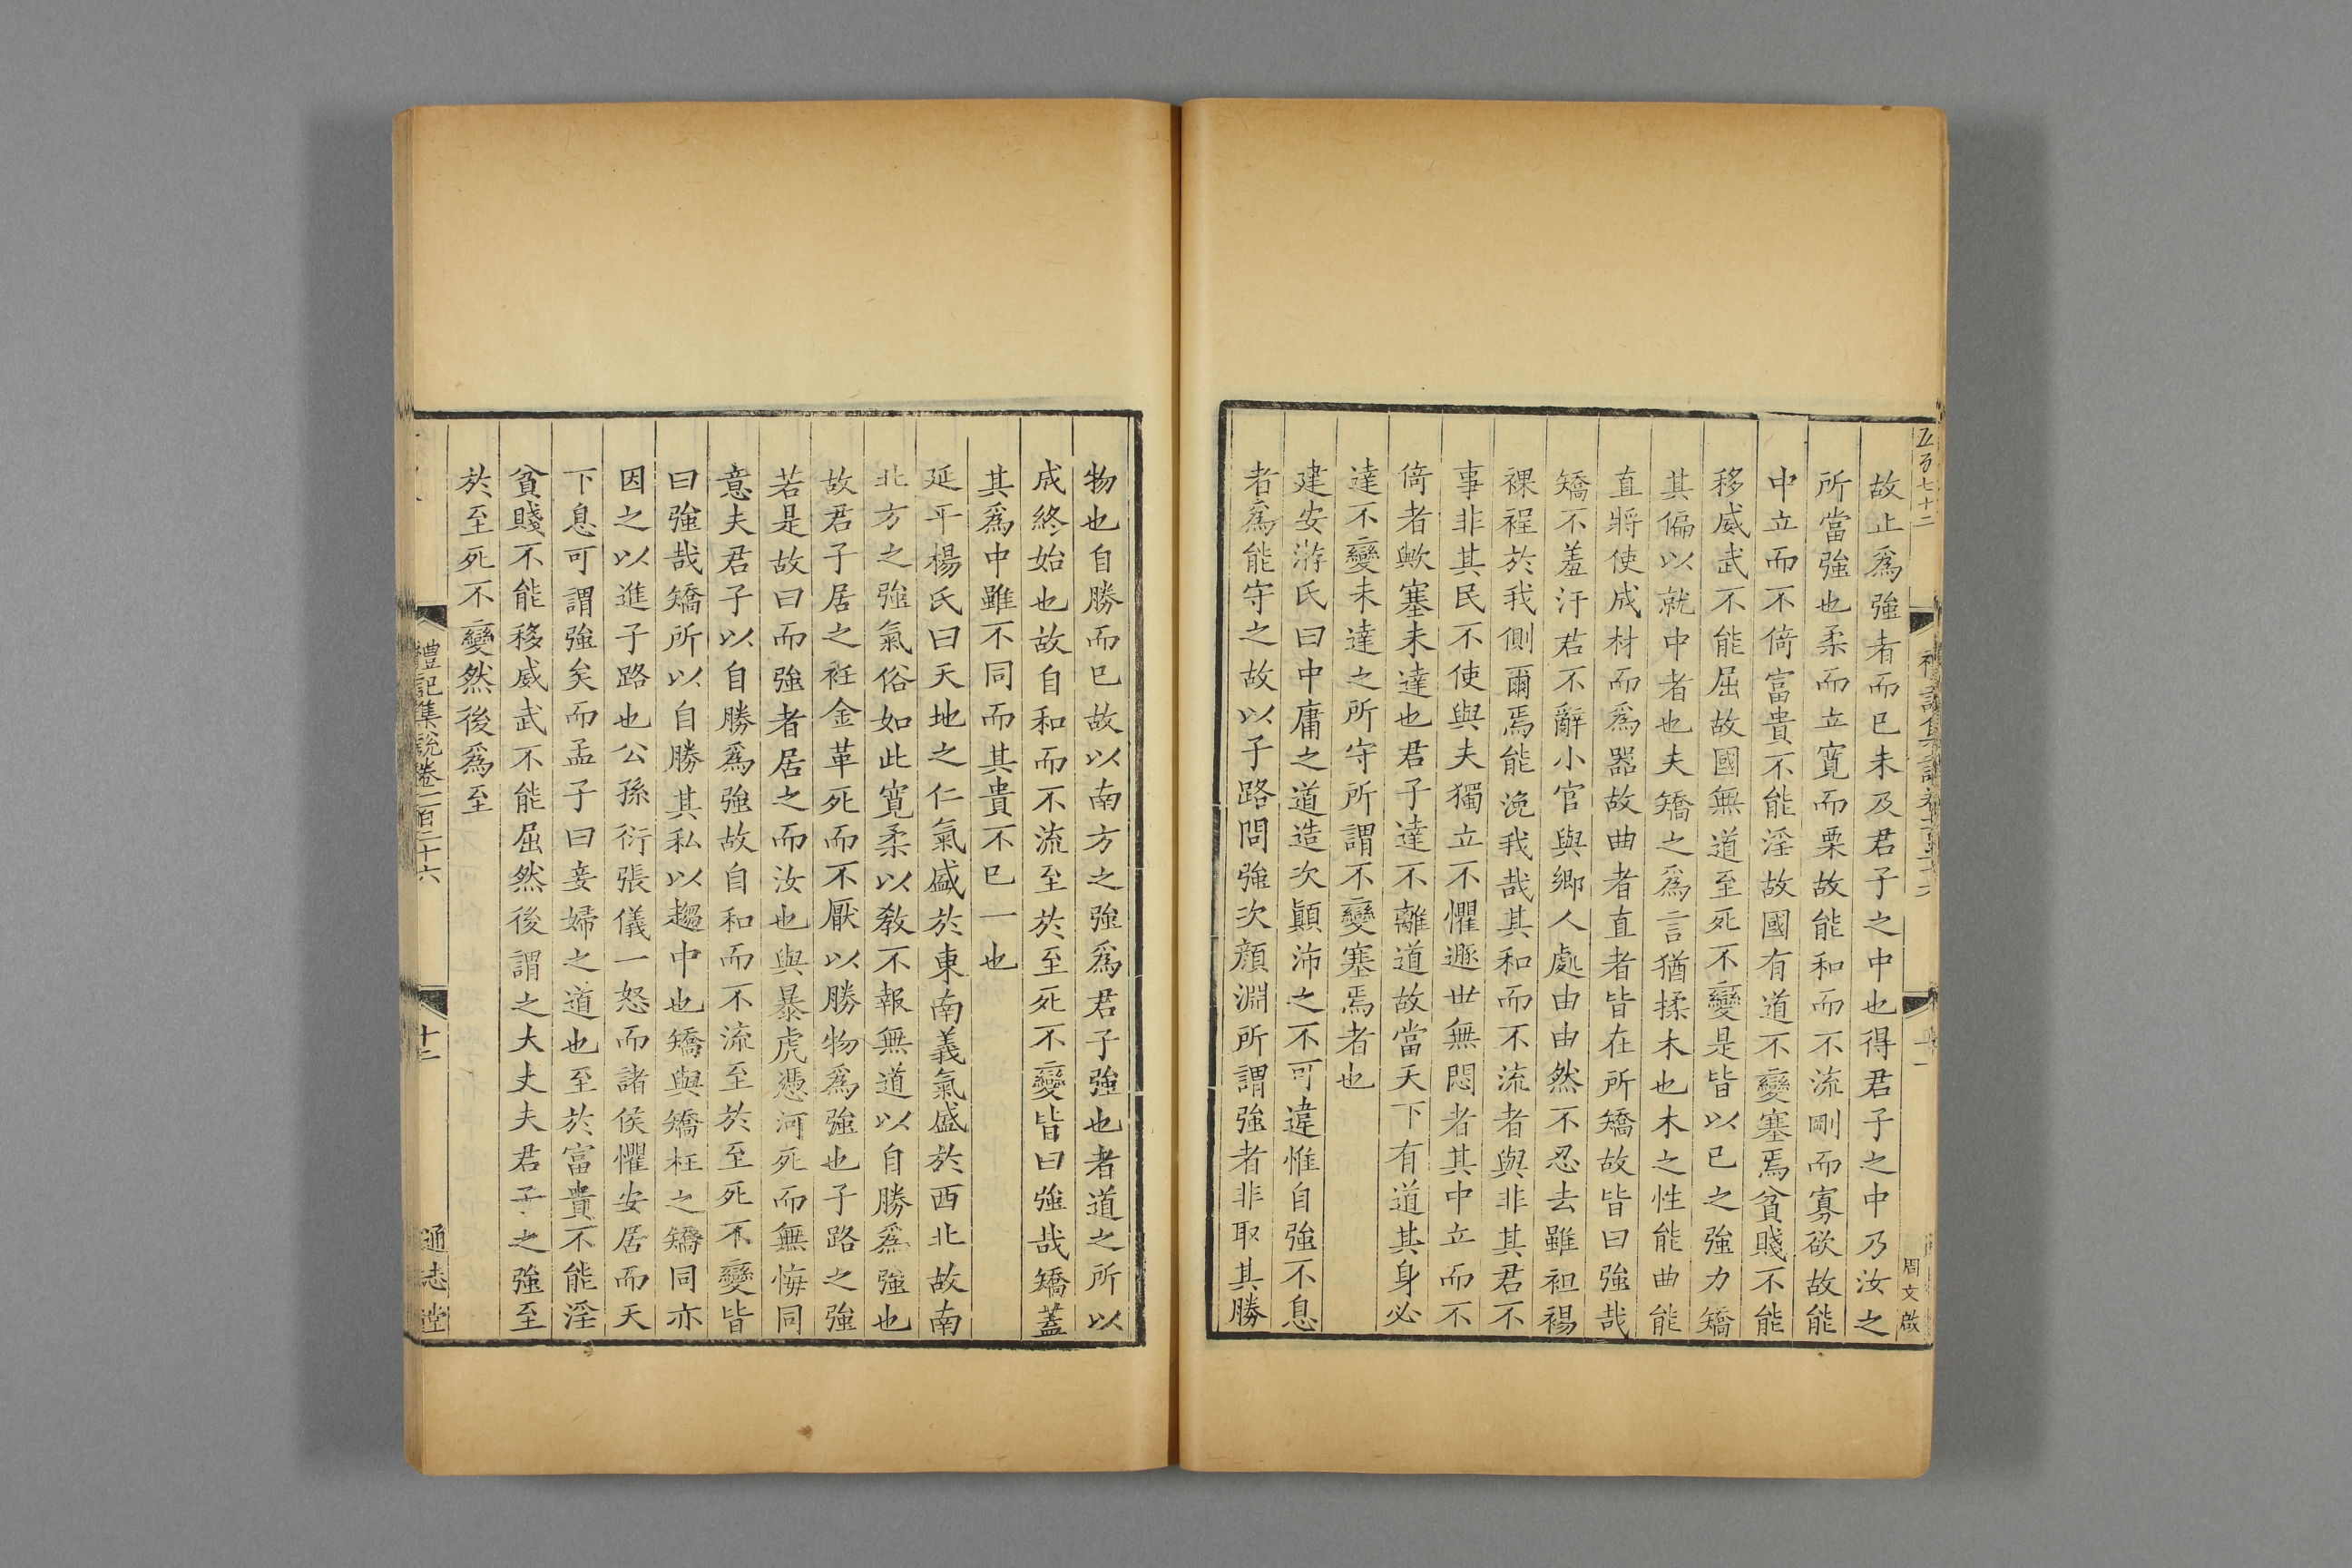 五百七十二
周文啟
故止爲強者而已未及君子之中也得君子之中乃汝之
所當強也柔而立寛而栗故能和而不流剛而寡欲故能
中立而不倚富貴不能淫故國有道不變塞焉貧賤不能
移威武不能屈故國無道至死不變是皆以已之強力矯
其偏以就中者也夫矯之爲言猶揉木也木之性能曲能
直將使成材而爲器故曲者直者皆在所矯故皆曰強哉
矯不羞汙君不辭小官與鄉人處由由然不忍去雖袒裼
裸裎於我側爾焉能浼我哉其和而不流者與非其君不
事非其民不使與夫獨立不懼遯世無悶者其中立而不
倚者歟塞未達也君子達不離道故當天下有道其身必
達不變未達之所守所謂不變塞焉者也
建安游氏曰中庸之道造次顚沛之不可違惟自強不息
者爲能守之故以子路問強次顔淵所謂強者非取其勝
物也自勝而已故以南方之強爲君子強也者道之所以
成終始也故自和而不流至於至死不變皆曰強哉矯蓋
其爲中雖不同而其貴不已一也
延平楊氏曰天地之仁氣盛於東南義氣盛於西北故南
北方之強氣俗如此寛柔以敎不報無道以自勝爲強也
故君子居之衽金革死而不厭以勝物爲強也子路之強
若是故曰而強者居之而汝也與暴虎憑河死而無悔同
意夫君子以自勝爲強故自和而不流至於至死不變皆
曰強哉矯所以自勝其私以趨中也矯與矯枉之矯同亦
因之以進子路也公孫衍張儀一怒而諸侯懼安居而天
下息可謂強矣而孟子曰妾婦之道也至於富貴不能淫
貧賤不能移威武不能屈然後謂之大丈夫君子之強至
於至死不變然後爲至
禮記集説卷一百二十六
十二
通志堂